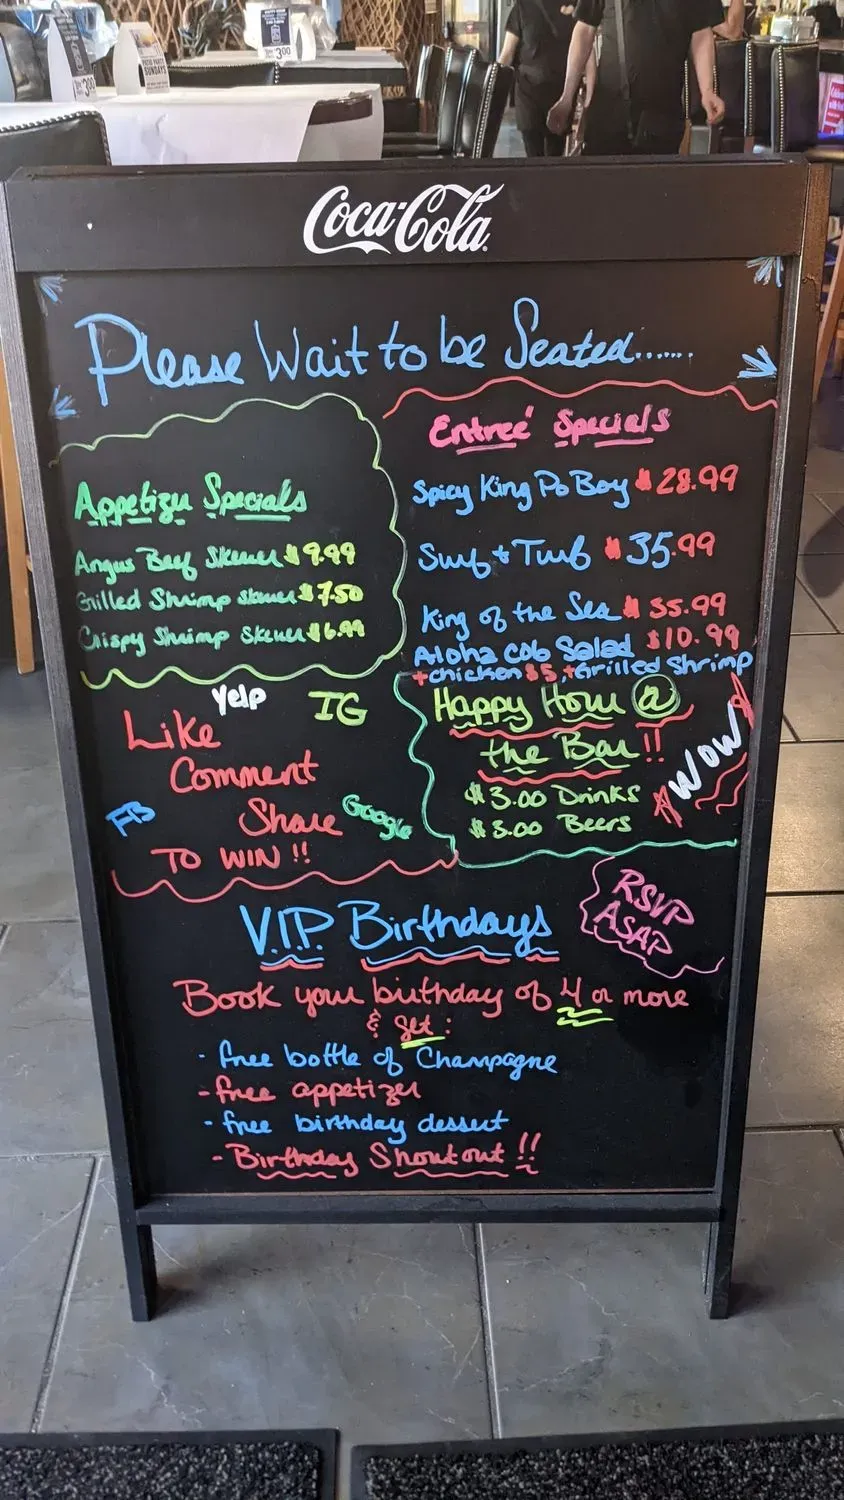 PATIO PARTY
SUNDAYS
$3.00
$3.00
Coca-Cola
Please Wait to be Seated.......
Appetizer Specials
Angus Beef Skewer $9.99
Grilled Shrimp skewer $7.50
Crispy Shrimp Skewer $6.99
Entreé Specials
Spicy King Po Boy $28.99
Surf + Turf $35.99
King of the Sea $55.99
Aloha cob Salad $10.99
+chicken $5, +Grilled Shrimp
Yelp
IG
Like
Comment
Share
FB
Google
TO WIN!!
Happy Hour @
the Bar!!
$3.00 Drinks
$3.00 Beers
WOW
RSVP
ASAP
V.I.P. Birthdays
Book your birthday of 4 or more
& get:
· free bottle of Champagne
- free appetizer
· free birthday dessert
- Birthday Shoutout!!